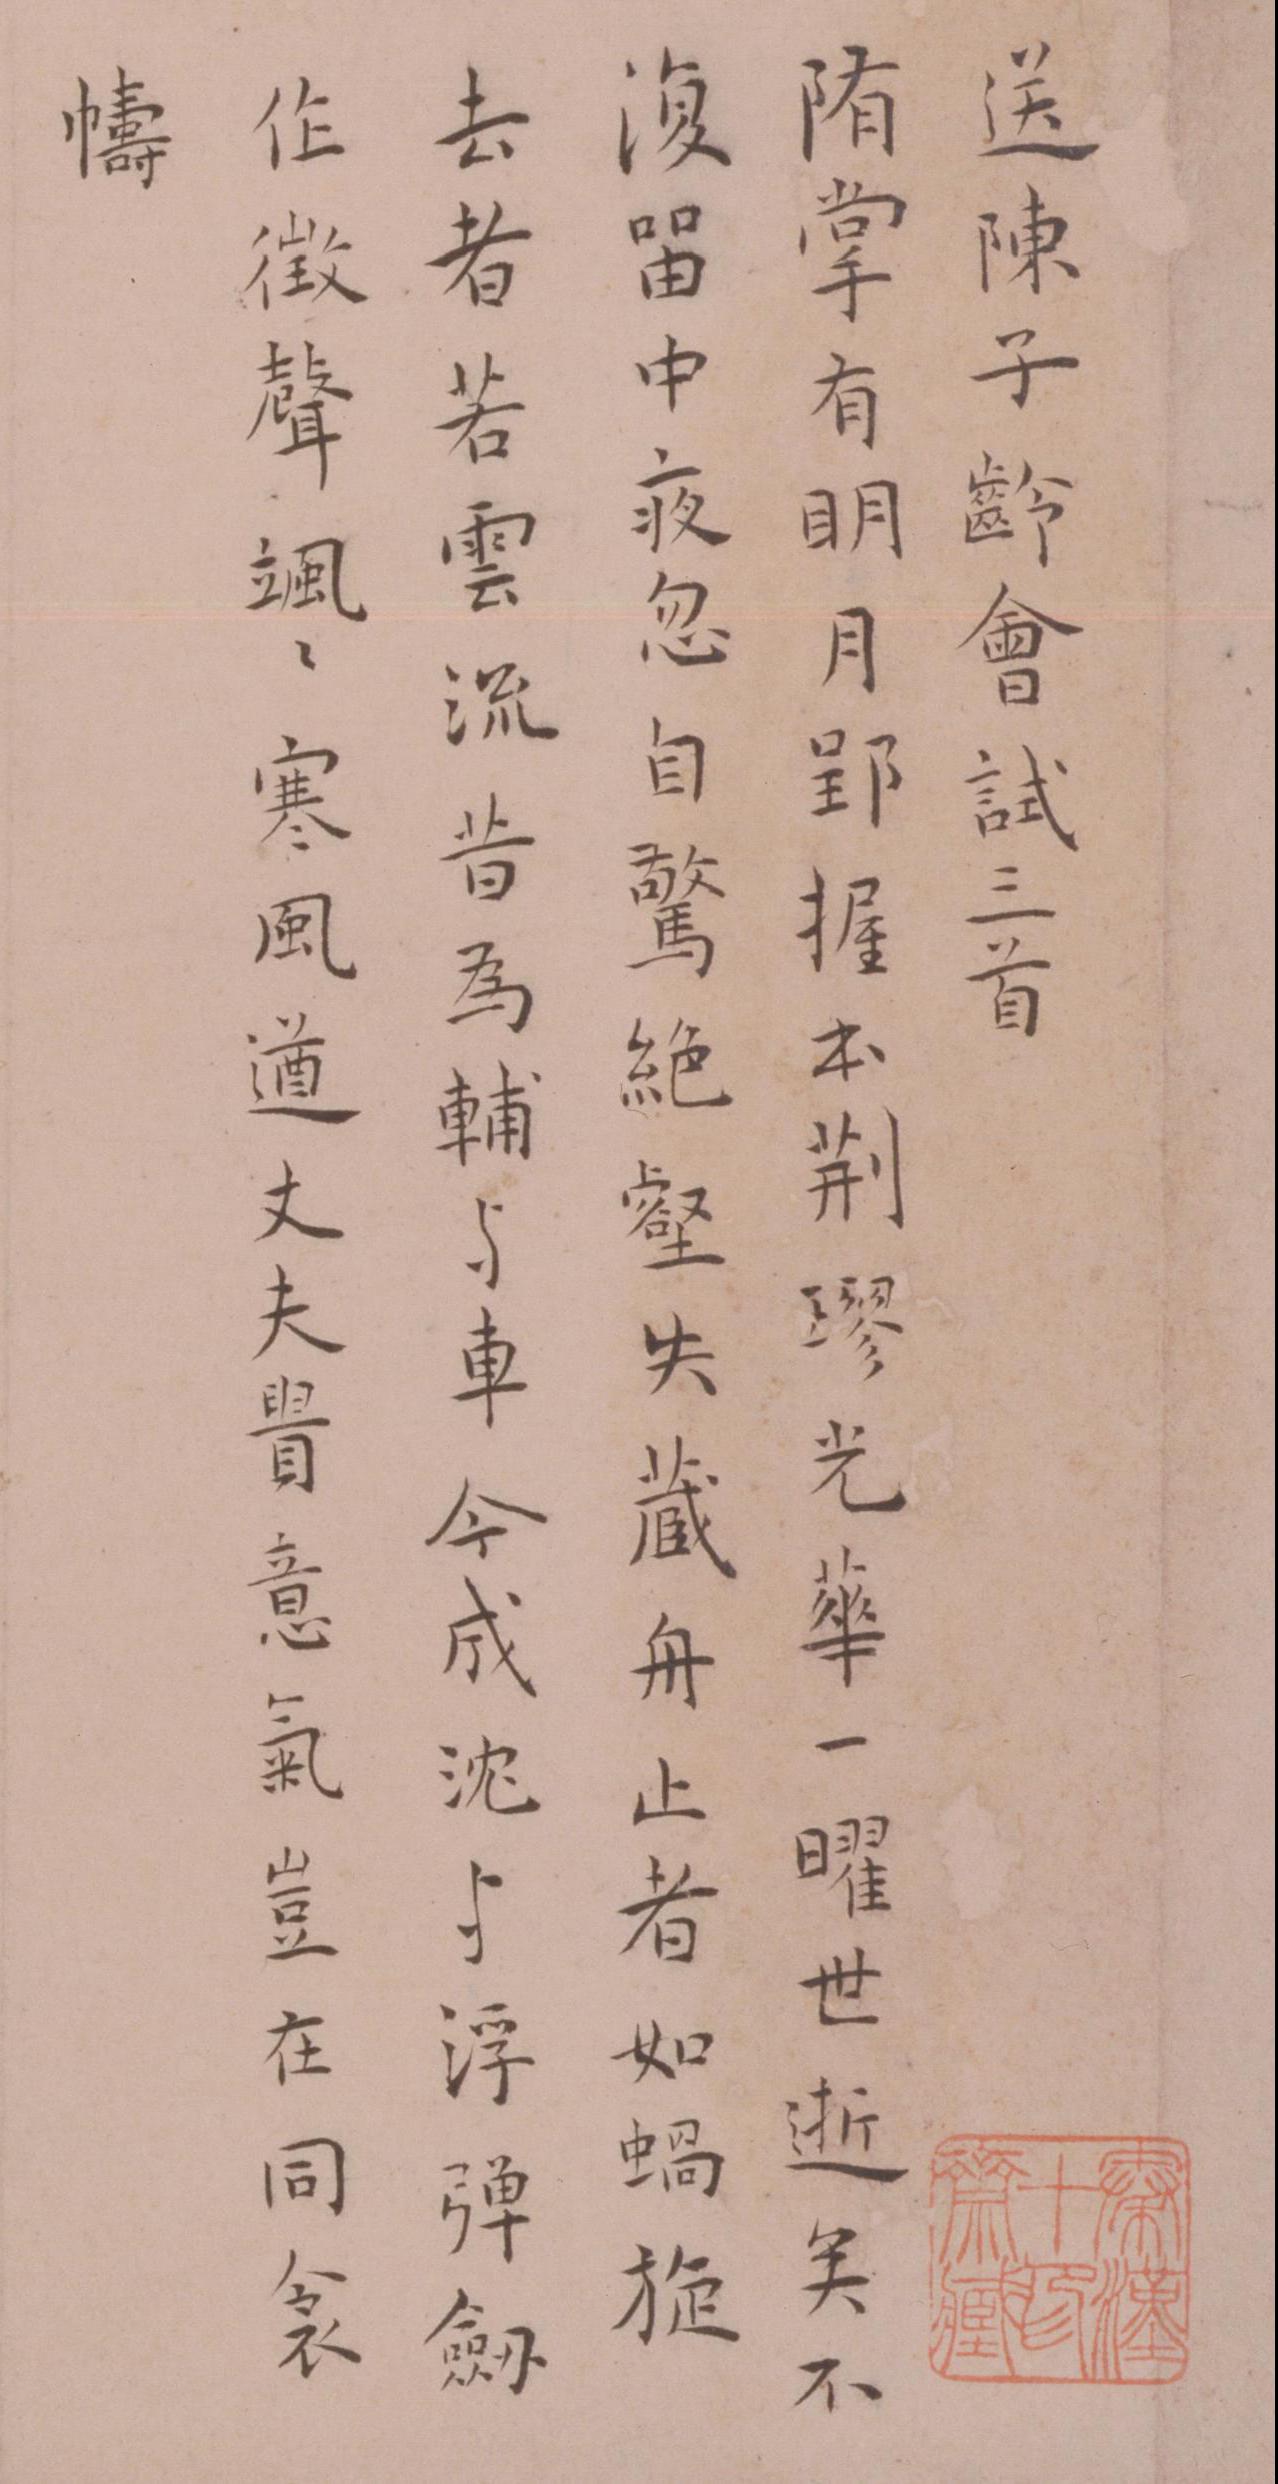 送陳子齡會試三首
隋掌有明月郢握本荆璆光華一曜世逝矣不
復留中夜忽自驚絕壑失藏舟止者如蝸旋
去者若雲流昔爲輔与車今成沈与浮彈劔
作徵聲颯〻寒風遒丈夫貴意氣豈在同衾
幬